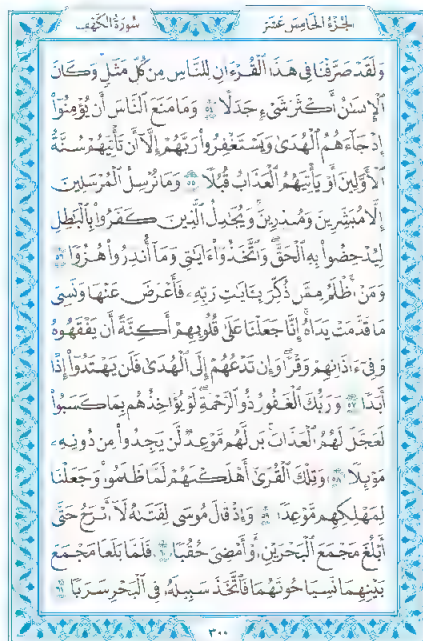 سُورَةُ الكَهْفِ الجُزْءُ الخَامِسَ عَشَرَ
وَلَقَدْ صَرَّفْنَا فِي هَٰذَا الْقُرْءَانِ لِلنَّاسِ مِن كُلِّ مَثَلٍ وَكَانَ
الْإِنسَٰنُ أَكْثَرَ شَىْءٍ جَدَلًا ٥٤ وَمَا مَنَعَ النَّاسَ أَن يُؤْمِنُوٓا۟
إِذْ جَآءَهُمُ الْهُدَىٰ وَيَسْتَغْفِرُوا۟ رَبَّهُمْ إِلَّآ أَن تَأْتِيَهُمْ سُنَّةُ
الْأَوَّلِينَ أَوْ يَأْتِيَهُمُ الْعَذَابُ قُبُلًا ٥٥ وَمَا نُرْسِلُ الْمُرْسَلِينَ
إِلَّا مُبَشِّرِينَ وَمُنذِرِينَ وَيُجَٰدِلُ الَّذِينَ كَفَرُوا۟ بِالْبَٰطِلِ
لِيُدْحِضُوا۟ بِهِ الْحَقَّ وَاتَّخَذُوٓا۟ ءَايَٰتِى وَمَآ أُنذِرُوا۟ هُزُوًا ٥٦
وَمَنْ أَظْلَمُ مِمَّن ذُكِّرَ بِـَٔايَٰتِ رَبِّهِۦ فَأَعْرَضَ عَنْهَا وَنَسِىَ
مَا قَدَّمَتْ يَدَاهُ إِنَّا جَعَلْنَا عَلَىٰ قُلُوبِهِمْ أَكِنَّةً أَن يَفْقَهُوهُ
وَفِىٓ ءَاذَانِهِمْ وَقْرًا وَإِن تَدْعُهُمْ إِلَى الْهُدَىٰ فَلَن يَهْتَدُوٓا۟ إِذًا
أَبَدًا ٥٧ وَرَبُّكَ الْغَفُورُ ذُو الرَّحْمَةِ لَوْ يُؤَاخِذُهُم بِمَا كَسَبُوا۟
لَعَجَّلَ لَهُمُ الْعَذَابَ بَل لَّهُم مَّوْعِدٌ لَّن يَجِدُوا۟ مِن دُونِهِۦ
مَوْئِلًا ٥٨ وَتِلْكَ الْقُرَىٰٓ أَهْلَكْنَٰهُمْ لَمَّا ظَلَمُوا۟ وَجَعَلْنَا
لِمَهْلِكِهِم مَّوْعِدًا ٥٩ وَإِذْ قَالَ مُوسَىٰ لِفَتَىٰهُ لَآ أَبْرَحُ حَتَّىٰٓ
أَبْلُغَ مَجْمَعَ الْبَحْرَيْنِ أَوْ أَمْضِىَ حُقُبًا ٦٠ فَلَمَّا بَلَغَا مَجْمَعَ
بَيْنِهِمَا نَسِيَا حُوتَهُمَا فَاتَّخَذَ سَبِيلَهُۥ فِى الْبَحْرِ سَرَبًا ٦١
٣٠٠